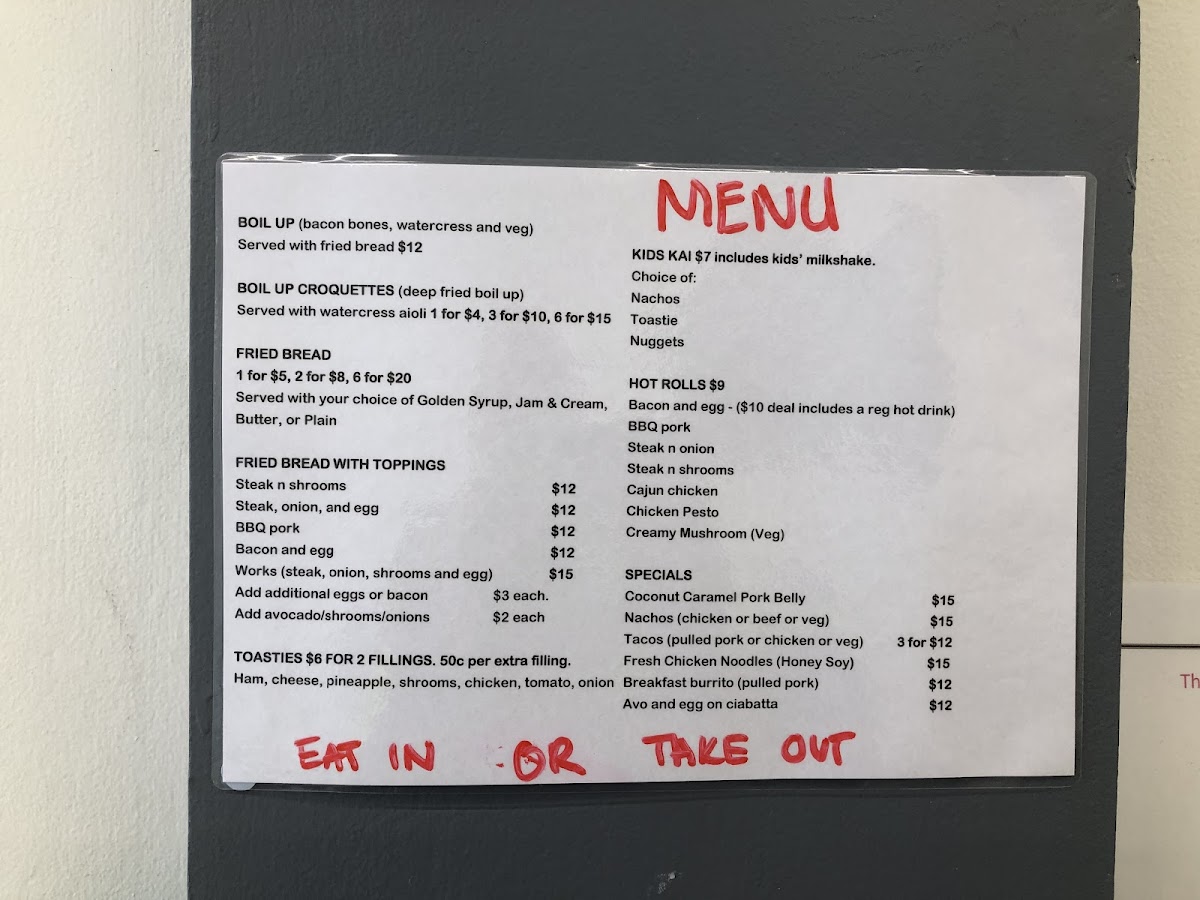 MENU
BOIL UP (bacon bones, watercress and veg)
Served with fried bread $12
BOIL UP CROQUETTES (deep fried boil up)
Served with watercress aioli 1 for $4, 3 for $10, 6 for $15
FRIED BREAD
1 for $5, 2 for $8, 6 for $20
Served with your choice of Golden Syrup, Jam & Cream,
Butter, or Plain
FRIED BREAD WITH TOPPINGS
Steak n shrooms $12
Steak, onion, and egg $12
BBQ pork $12
Bacon and egg $12
Works (steak, onion, shrooms and egg) $15
Add additional eggs or bacon $3 each.
Add avocado/shrooms/onions $2 each
TOASTIES $6 FOR 2 FILLINGS. 50c per extra filling.
Ham, cheese, pineapple, shrooms, chicken, tomato, onion
KIDS KAI $7 includes kids' milkshake.
Choice of:
Nachos
Toastie
Nuggets
HOT ROLLS $9
Bacon and egg - ($10 deal includes a reg hot drink)
BBQ pork
Steak n onion
Steak n shrooms
Cajun chicken
Chicken Pesto
Creamy Mushroom (Veg)
SPECIALS
Coconut Caramel Pork Belly $15
Nachos (chicken or beef or veg) $15
Tacos (pulled pork or chicken or veg) 3 for $12
Fresh Chicken Noodles (Honey Soy) $15
Breakfast burrito (pulled pork) $12
Avo and egg on ciabatta $12
EAT IN OR TAKE OUT
Th